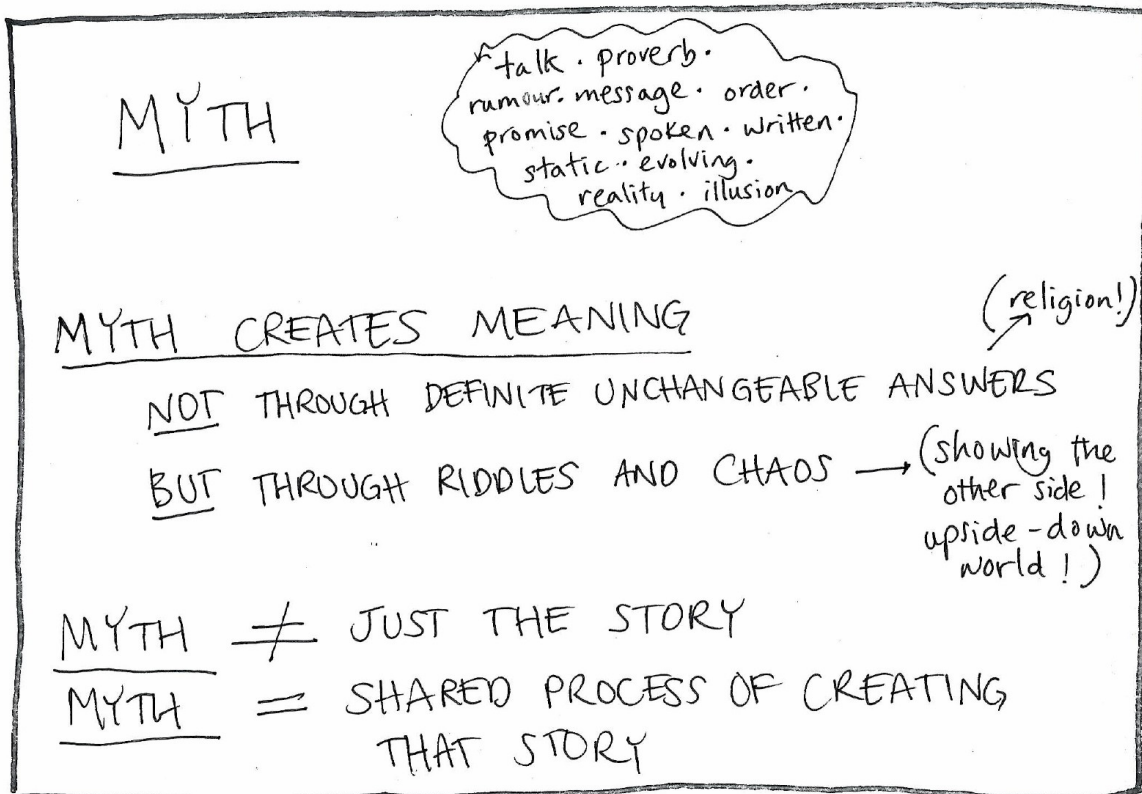 MYTH
talk · proverb ·
rumour · message · order ·
promise · spoken · written ·
static · evolving ·
reality · illusion
MYTH CREATES MEANING
(religion!)
NOT THROUGH DEFINITE UNCHANGEABLE ANSWERS
BUT THROUGH RIDDLES AND CHAOS → (showing the
other side!
upside-down
world!)
MYTH ≠ JUST THE STORY
MYTH = SHARED PROCESS OF CREATING
THAT STORY